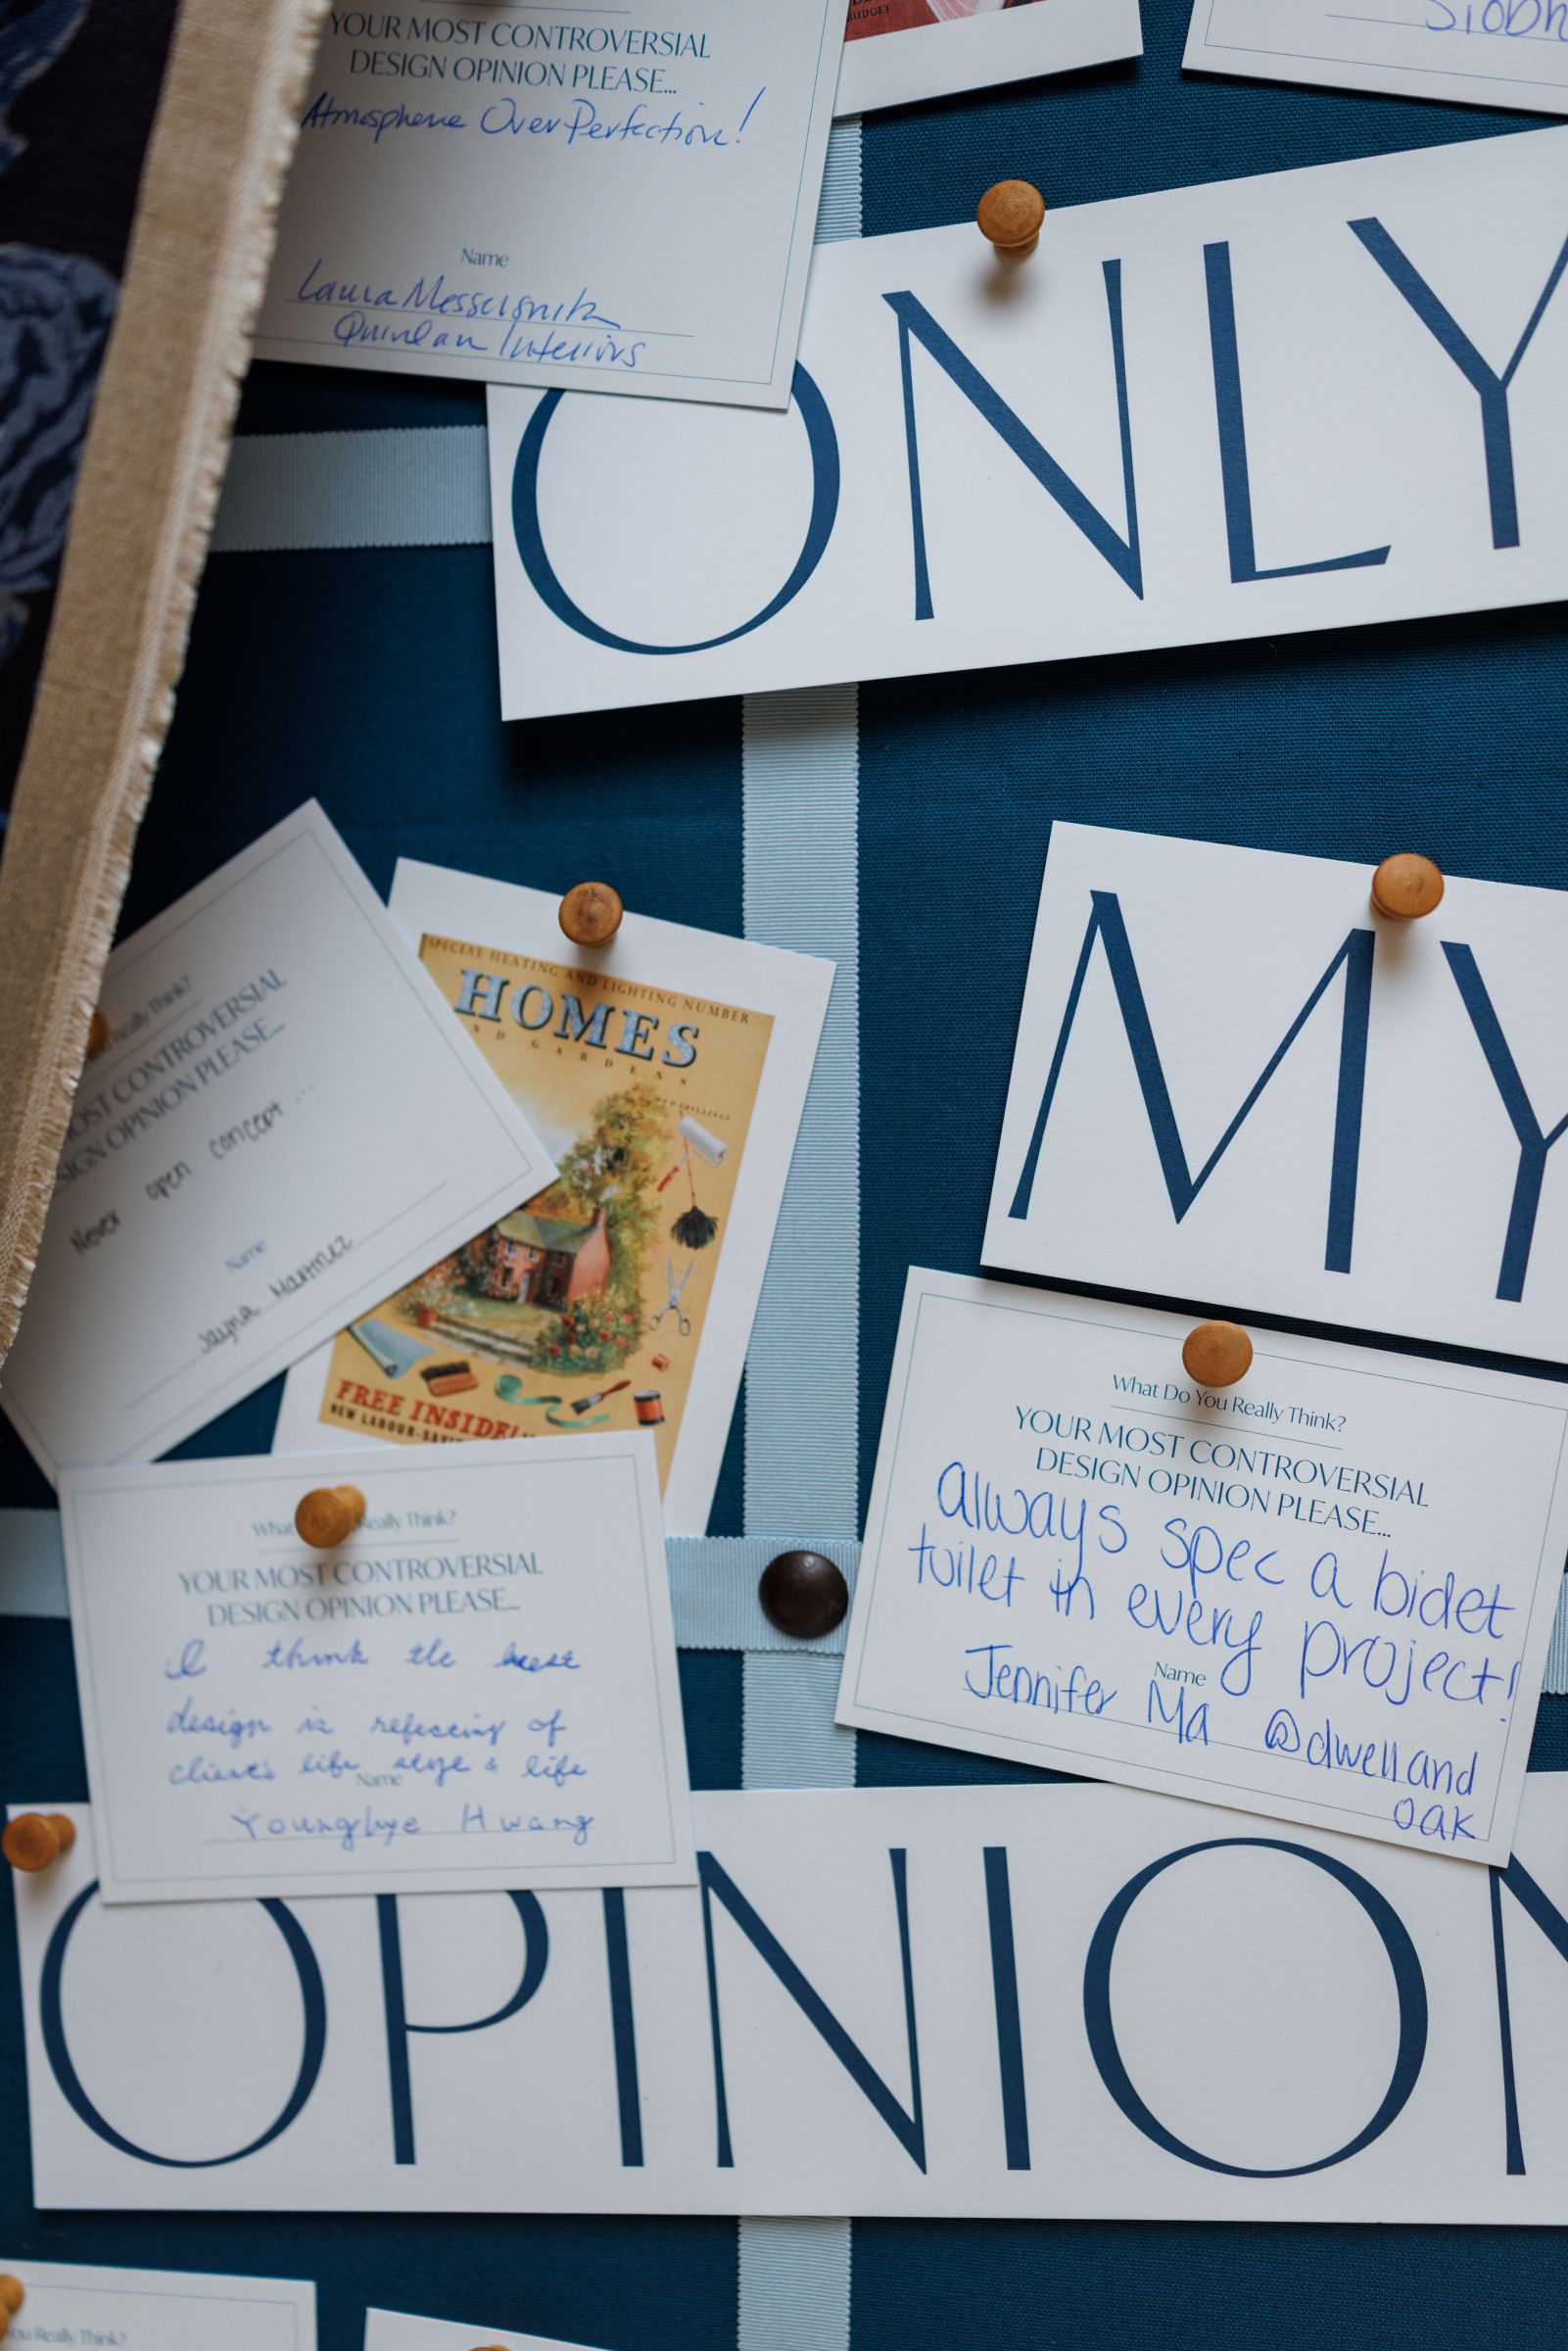 BUDGET
Siobh
YOUR MOST CONTROVERSIAL
DESIGN OPINION PLEASE...
Atmosphere Over Perfection!
Name
Laura Messersmith
Quinlan Interiors
ONLY
MY
SPECIAL HEATING AND LIGHTING NUMBER
HOMES
ND GARDENS
FREE INSIDE!
NEW LABOUR-SAVI
Really Think?
OST CONTROVERSIAL
SIGN OPINION PLEASE...
Never open concept...
Name
Jayna Martinez
What Do You Really Think?
YOUR MOST CONTROVERSIAL
DESIGN OPINION PLEASE...
always spec a bidet
toilet in every project!
Name
Jennifer Ma @dwelland
oak
What Really Think?
YOUR MOST CONTROVERSIAL
DESIGN OPINION PLEASE...
I think the
design is reflecting of
client's life style & life
Name
Younghye Hwang
OPINION
You Really Think?